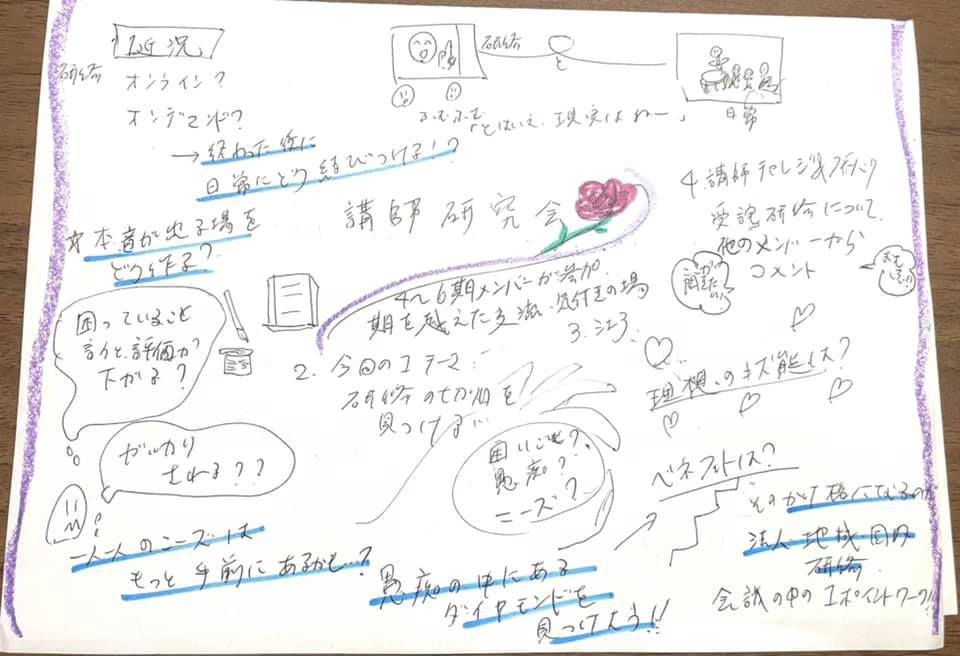 近況
研修
オンライン?
オンデマンド?
→終わった後に
日常にどう結びつける!?
研修
と
ふむふむ
「とはいえ、現実はねー」
日常
講師研究会
本音が出る場を
どう作る?
困っていること
言うと、評価が
下がる?
がっかり
される??
一人一人のニーズは
もっと手前にあるかも…?
4~6期メンバーが参加
期を越えた交流・気付きの場
2. 今回の1テーマ:
研修の切り口を
見つける…
困りごと?
愚痴?
ニーズ?
愚痴の中にある
ダイヤモンドを
見つけよう!!
4 講師チャレジ&フィードバック
受講研修について
他のメンバーから
コメント
理想の は?
ベネフットは?
法人・地域・国内
研修
会議の中の1ポイントワーク!!